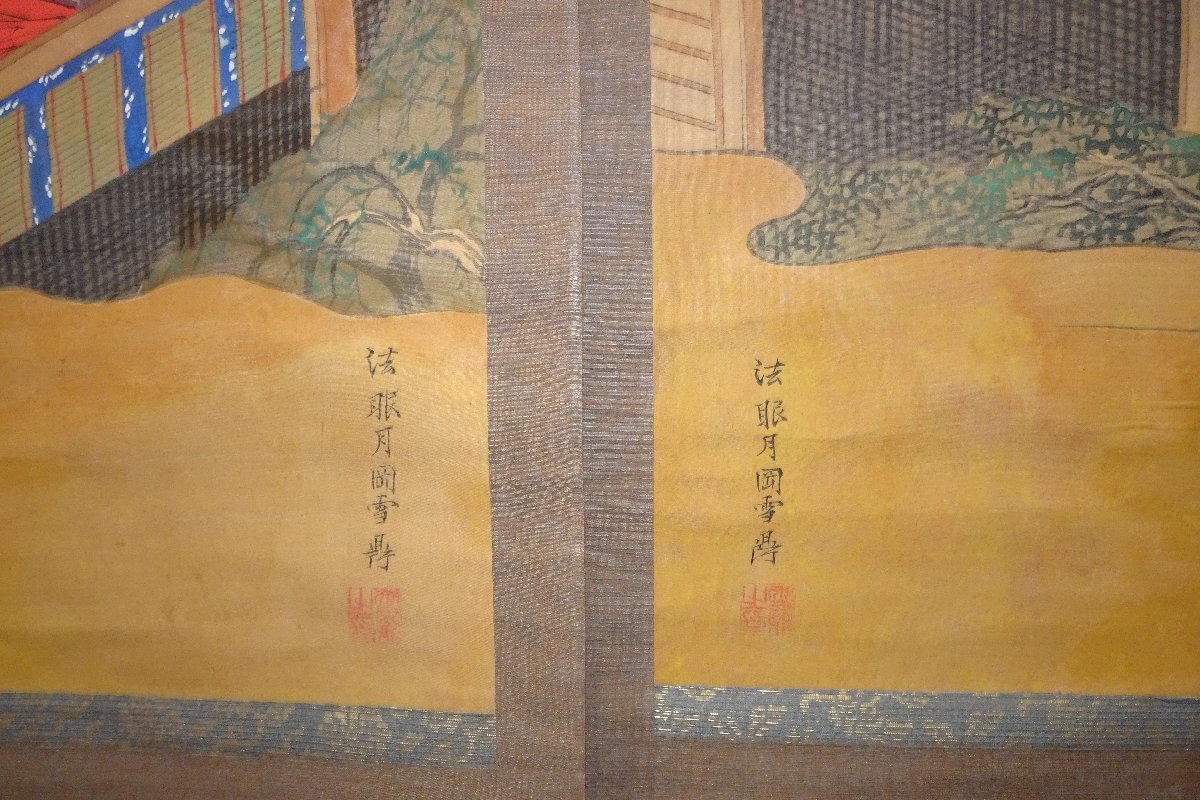 法眼月岡雪鼎
法眼月岡雪鼎